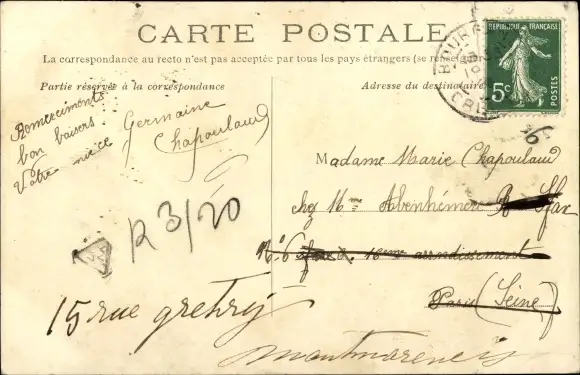 CARTE POSTALE
La correspondance au recto n'est pas acceptée par tous les pays étrangers (se renseigner
Partie réservée à la correspondance
Adresse du destinataire
RÉPUBLIQUE FRANÇAISE
5c
POSTES
BOURG
Remerciments
bon baisers
Votre nièce
Germaine
Chapoulaud
Madame Marie Chapoulaud
chez Mme
Nº 6 16me arrondissement
Paris (Seine)
R 3/20
15 rue gretry
montmorency